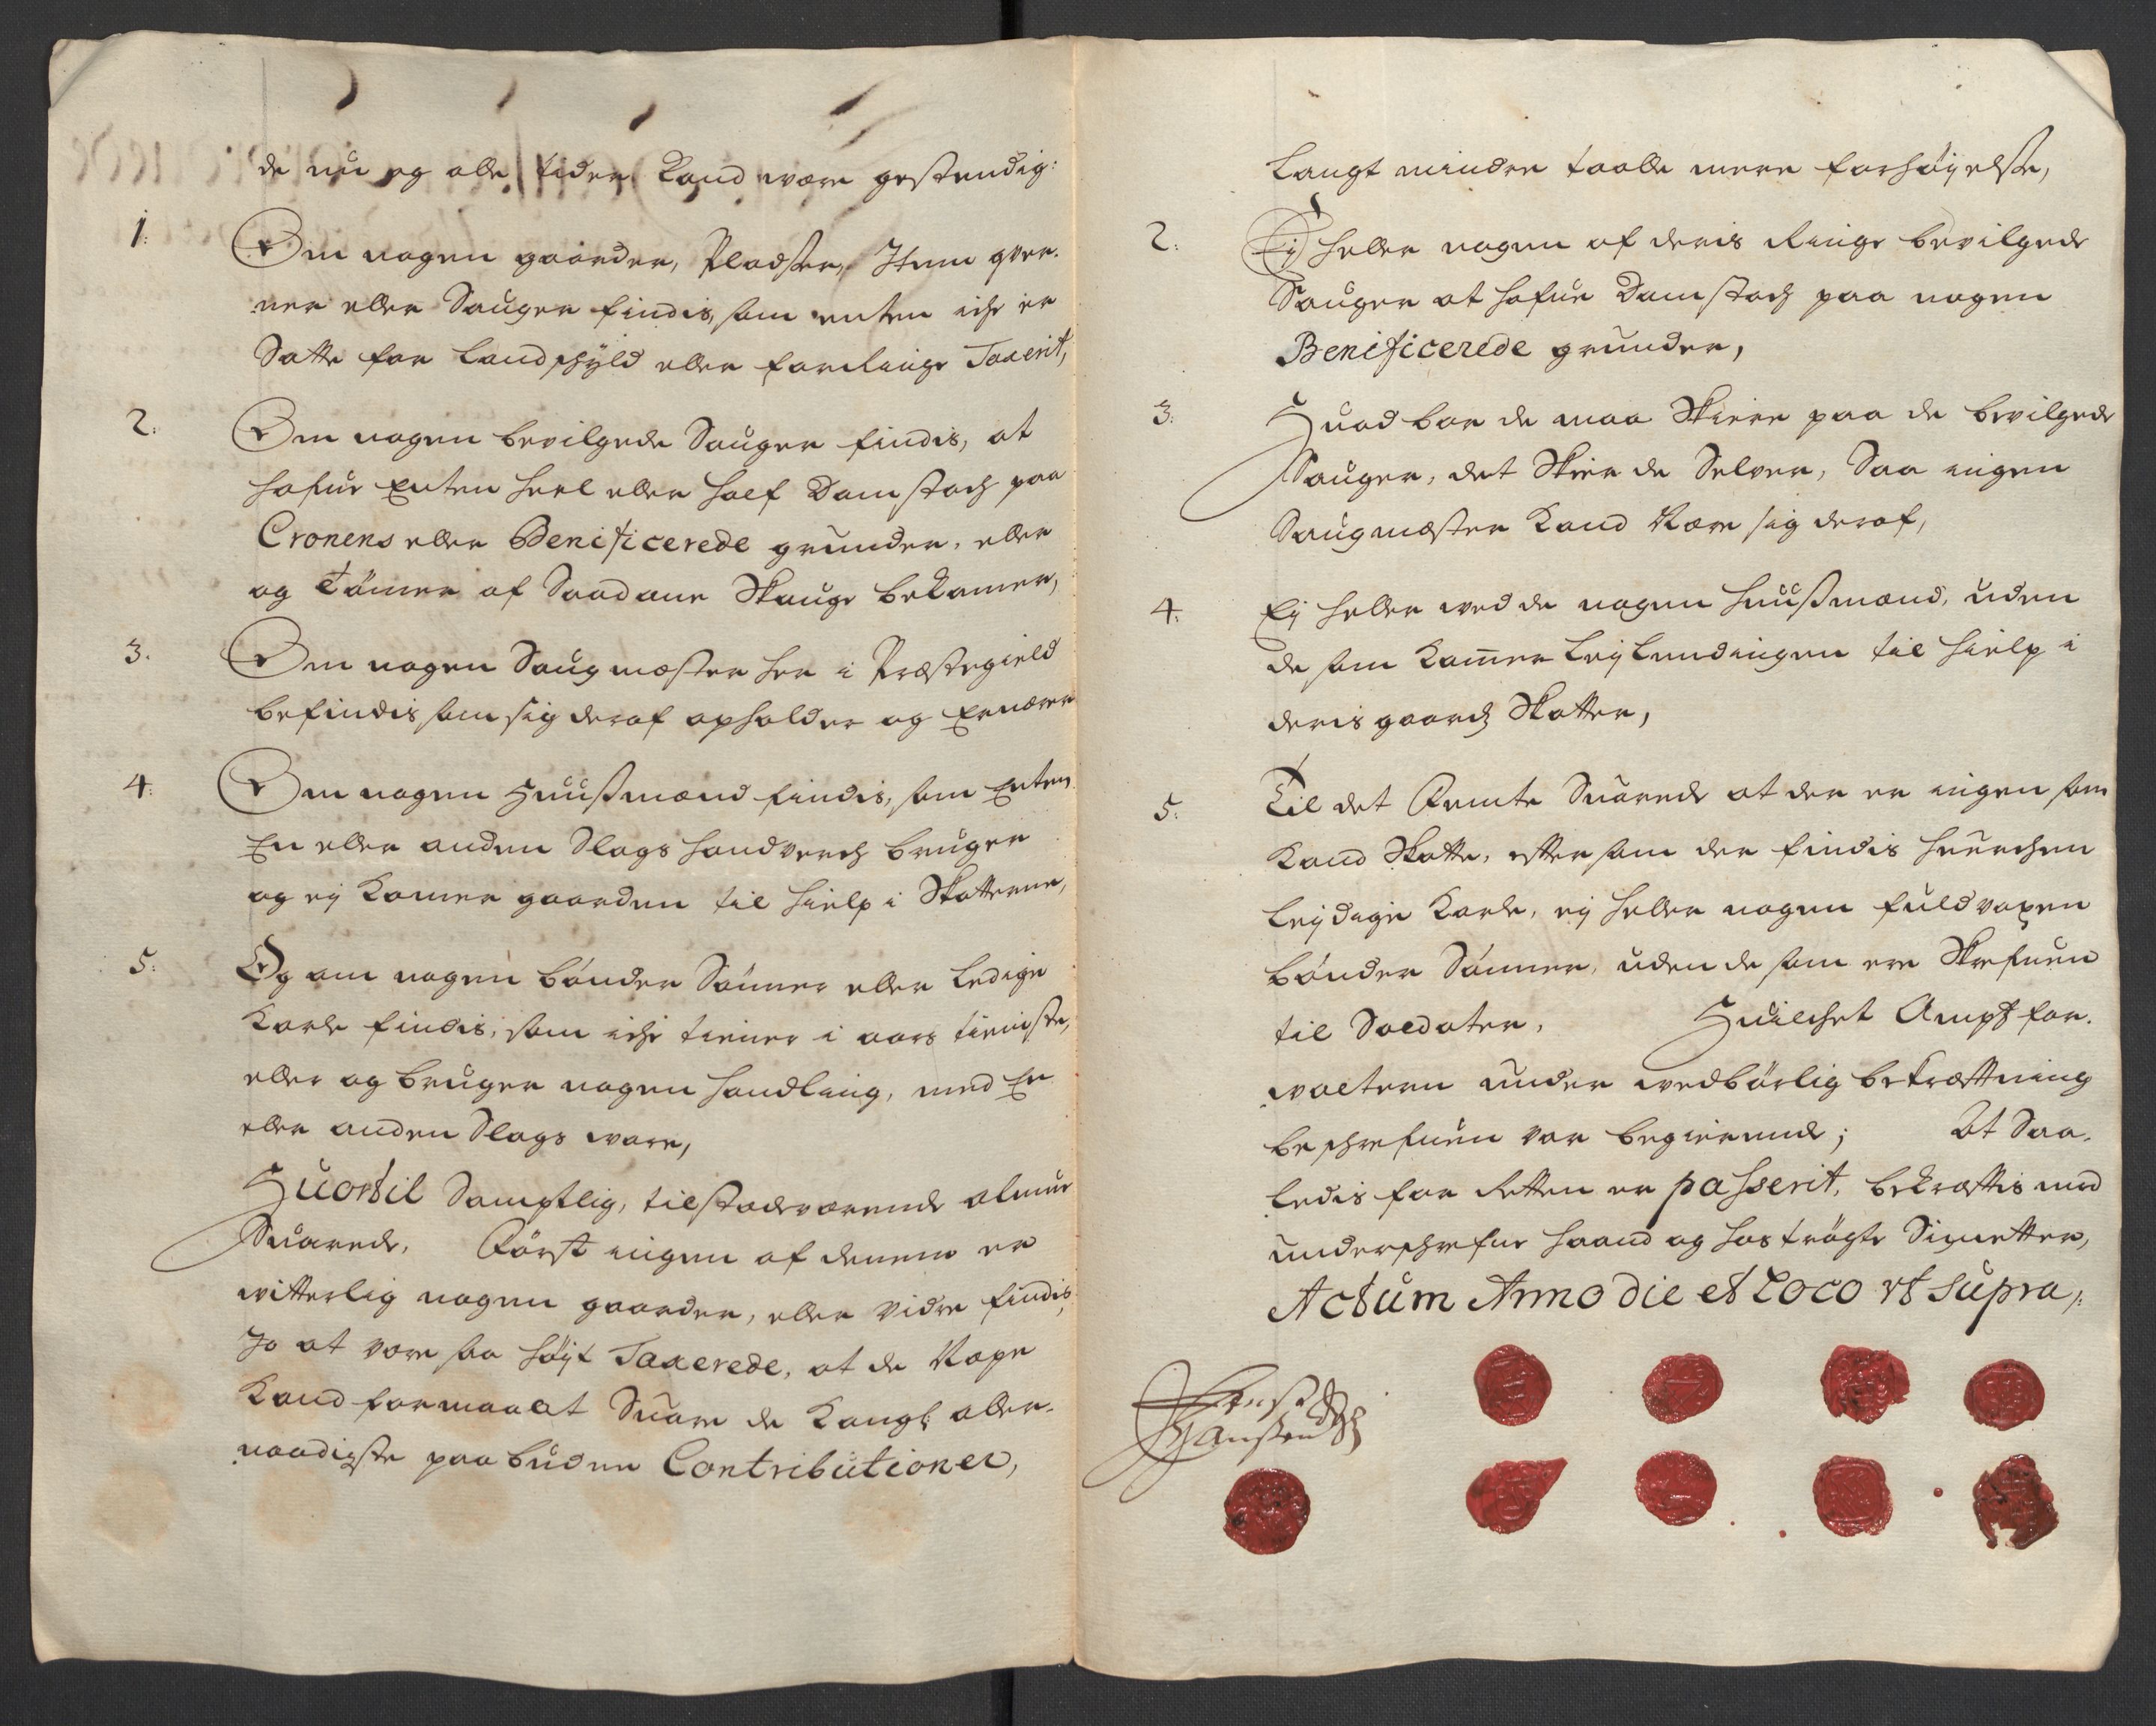 de nu og alle tider kand være gestendig:
1: Om nogen gaarder, Pladser, Item qver-
ner eller Sauger findis, som enten iche er
Satte for Landschyld eller for ringe Taxerit,
2: Om nogen bevilgede Sauger findis, at
hafue Enten heel eller half Damstoch paa
Cronens eller Benificerede grunder, eller
og Tömer af Saadane Skauge bekomer,
3. Om nogen Saugmæster her i Præstegield
befindis som sig deraf opholder og Ernærer
4: Om nogen Huusmænd findis, som Enten
En eller anden Slags handverch bruger
og ej komer gaarden til hielp i Skatterne,
5: Og om nogen bönder Sönner eller Ledige
Karle findis, som iche tiener i aars tieniste,
eller og bruger nogen handling, med En
eller anden Slags ware,
Huortil Samptlig, tilstædeværende almue
Suarede, Först ingen af dennem er
witterlig nogen gaarder, eller vidre findis,
Jo at vere saa höyt Taxerede, at de Nape
kand formaa at Suare de Kongl: aller-
naadigste paabudne Contributioner,
Langt mindre taale mere forhöyelse,
2: Ej heller nogen af deris Ringe bevilgede
Sauger at hafue Damstoch paa nogen
Benificerede grunder,
3: Huad bor de maa Skiere paa de bevilgede
Sauger, det Skier de Selver, Saa ingen
Saugmæster kand Nære sig deraf,
4: Ej heller wed de nogen huusmænd, uden
de som komer Leylendingen til hielp i
deris gaards Skatter,
5: Til det Femte Suarede at der er ingen som
kand Skatte, efftersom der findis huerchen
Leydige Karle, ej heller nogen fuldvoxen
bönder Sönner, uden de som ere Skrefuen
til Soldater, Huilchet Ampt for-
walteren under wedbörlig bekræfftning
beschrefuen var begierende; At Saa-
ledis for Retten er passerit, bekræfftis med
underschrefne haand og hoströgte Signetter,
Actum Anno die et Loco ut supra,:
Hanssen